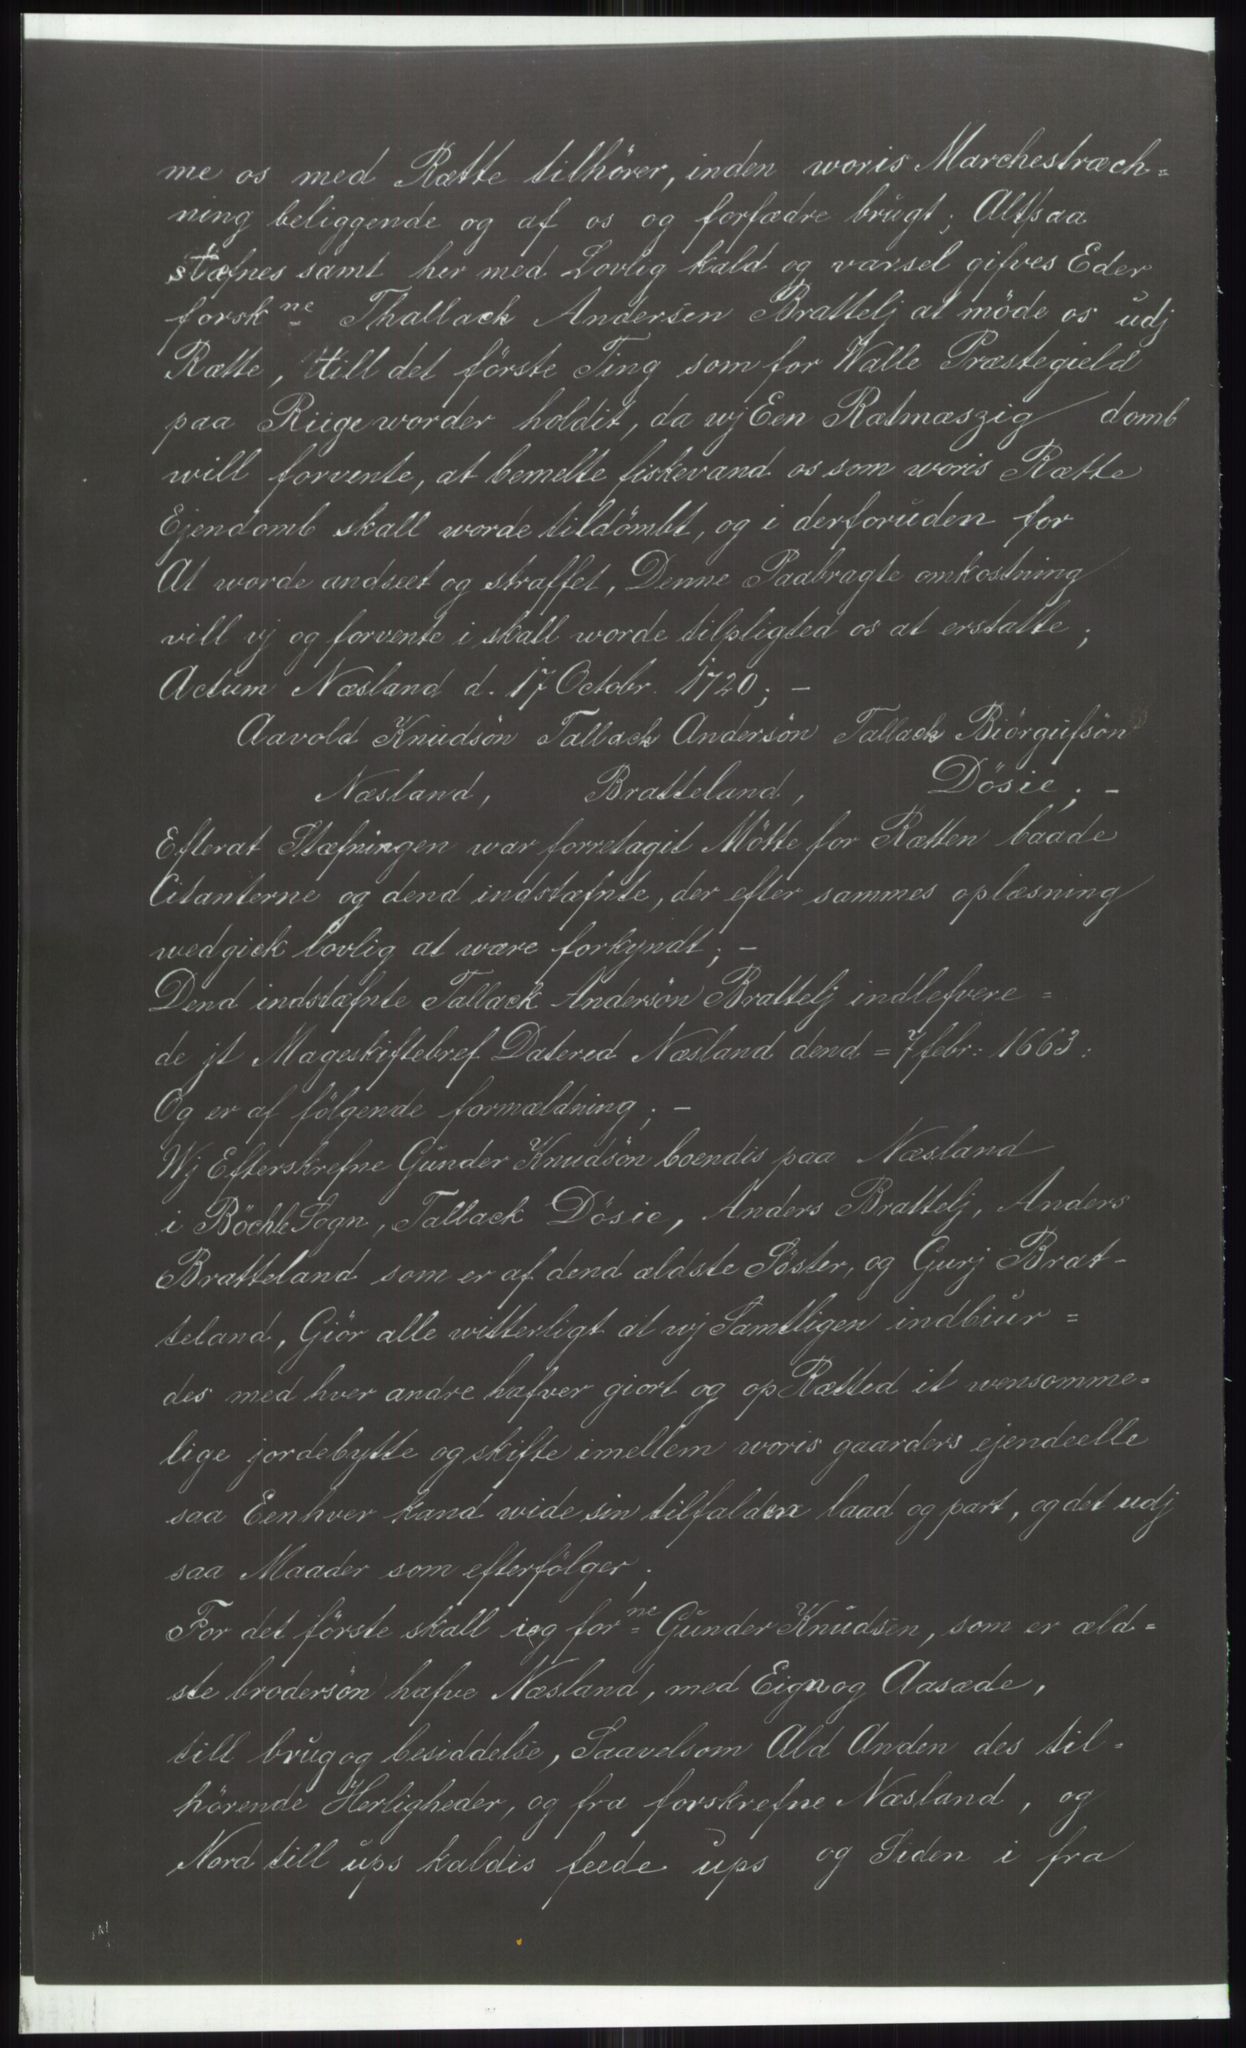 me os med Rætte tilhörer, inden woris Marchestræch=
ning beliggende og af os og forfædre brugt; Altsaa
stæfnes samt her med Lovlig kald og varsel gifves Eder
forsk ne Thallack Andersen Brattelj at möde os udj
Rætte, till det förste Ting som for Walle Præstegield
paa Riige worder holdit, da wj Een Rætmæszig domb
will forvente, at bemelte fiskevand os som woris Rætte
Ejendomb skall worde tildömbt, og i derforuden for
At worde andseet og straffet, Denne Paabragte omkostning
vill vj og forvente i skall worde tilpligted os at erstatte;
Actum Næsland d. 17 Octobr. 1720; –
Aavold Knudsön Tallack Andersön Tallack Biörgufsön
Næsland, Bratteland, Dösie; –
Efterat Stæfningen war forretagit Mötte for Rætten baade
Citanterne og dend indstæfnte, der efter sammes oplæsning
wedgick lovlig at wære forkyndt; –
Dend indstæfnte Tallack Andersön Brattelj indlefvere=
de jt Mageskiftebref Datered Næsland dend = 7 febr: 1663:
Og er af fölgende formældning; –
Wj Efterskrefne Gunder Knudsön boendis paa Næsland
i Böchle Sogn, Tallack Dösie, Anders Brattelj, Anders
Bratteland som er af dend ældste Söster, og Gurj Brat-
teland, Giör alle witterligt at wj Samtligen indbiur=
des med hver andre hafver giort og op Rætted it wensomme=
lige jordebytte og skifte imellem woris gaarders ejendeelle
saa Eenhver kand wide sin tilfalden laad og part, og det udj
saa Maader som efterfölger;
For det förste skall ieg for ne Gunder Knudsen, som er æld=
ste brodersön hafve Næsland, med Eign og Aasæde,
till brug og besiddelse, Saavelsom Ald Anden des til=
hörende Herligheder, og fra forskrefne Næsland, og
Nord till ups kaldis feede ups og Siden i fra